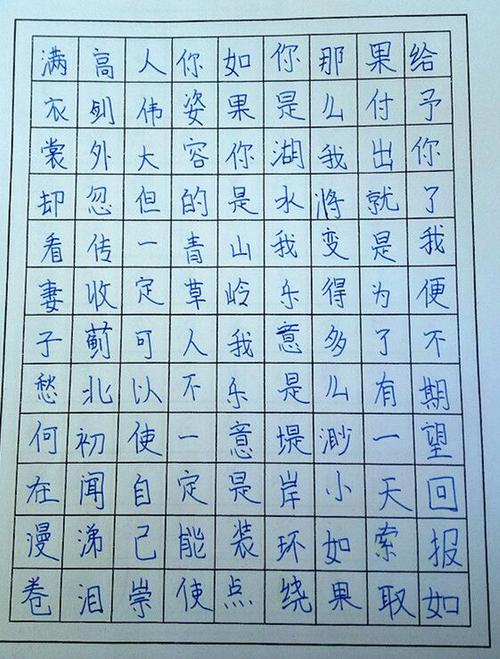 给予你了我便不期望回报如
果付出就是为了有一天索取
那么我将变得多么渺小如果
你是湖水我乐意是堤岸环绕
如果你是山岭我乐意是装点
你姿容的青草人不一定能使
人伟大但一定可以使自己崇
高剑外忽传收蓟北初闻涕泪
满衣裳却看妻子愁何在漫卷